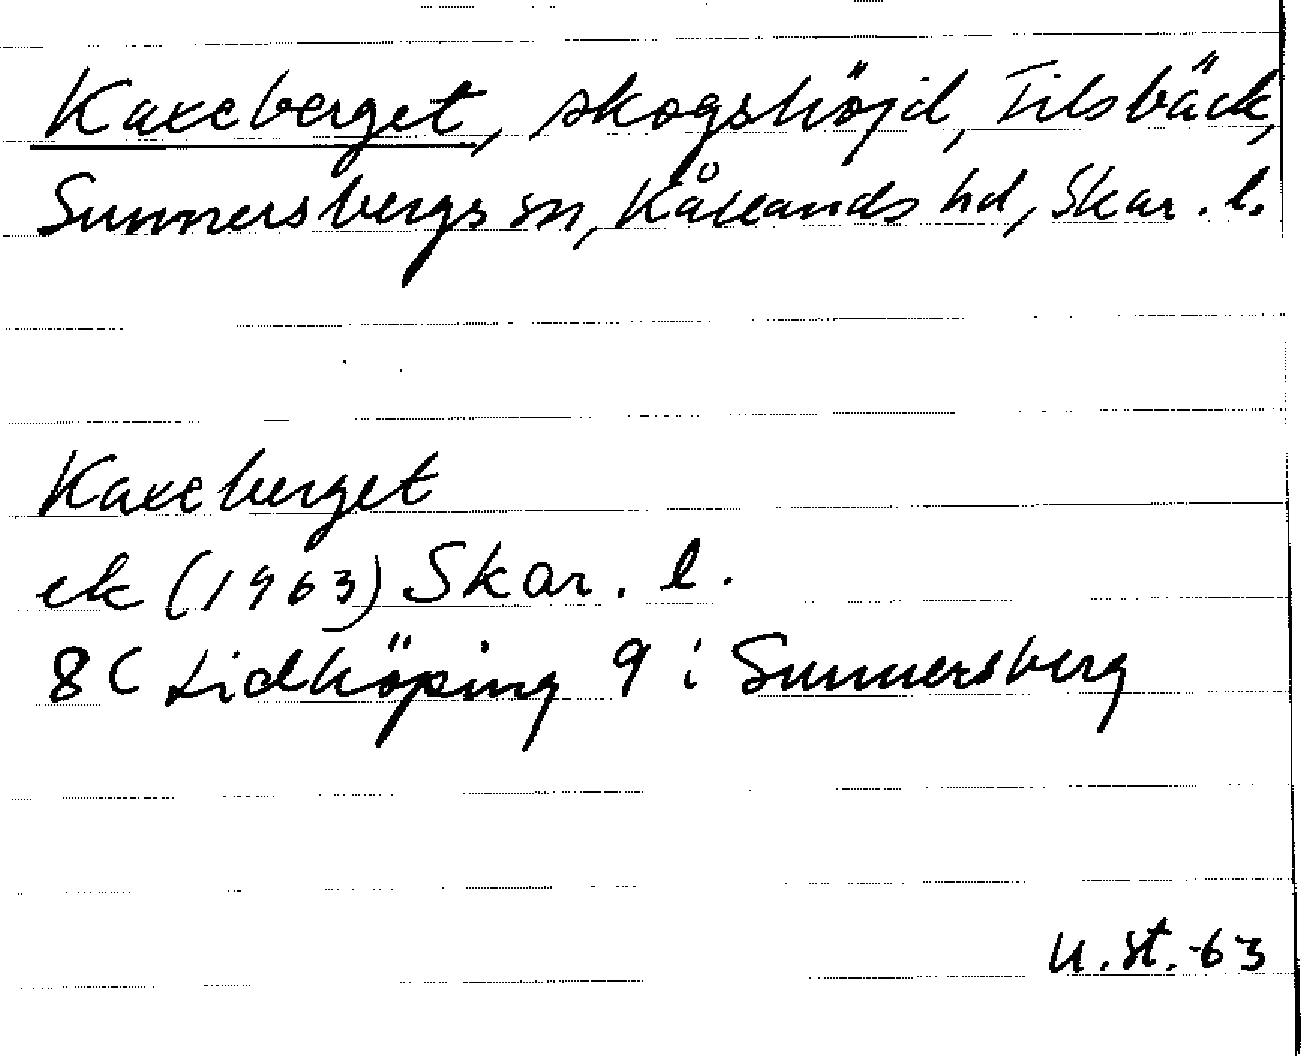 Kaxeberget, skogshöjd, Filsbäck,
Sunnersbergs sn, Kållands hd, Skar. l.
Kaxeberget
ek (1963) Skar. l.
8C Lidköping 9 i Sunnersberg
U.St.-63